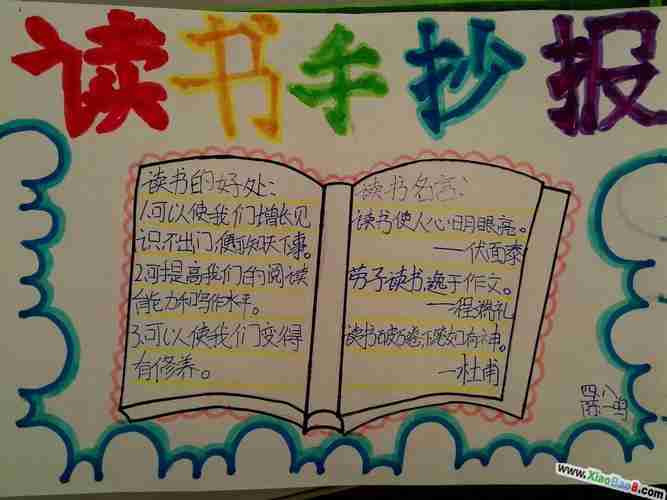 读书手抄报
读书的好处:
1.可以使我们增长见
识,不出门便可知天下事。
2.可提高我们的阅读
能力和写作水平。
3.可以使我们变得
有修养。
读书名言:
读书使人心明眼亮。
——伏尔泰
劳于读书,逸于作文。
——程端礼
读书破万卷,下笔如有神。
—杜甫
四、八
一鸣
www.XiaoBao8.com